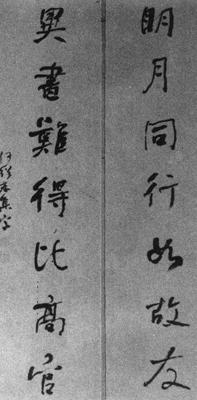 明月同行如故友
異書難得比高官